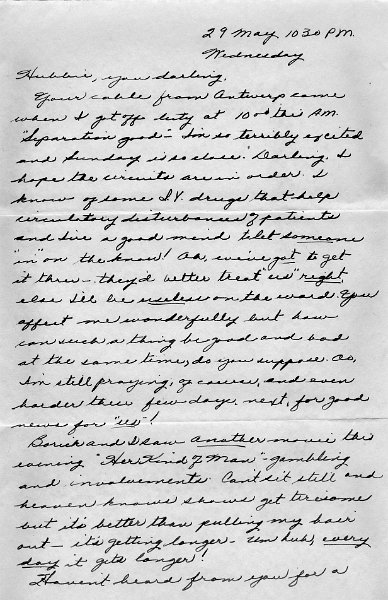 29 May 1030 P.M.
Wednesday
Hubbie, you darling,
Your cable from Antwerp came
when I got off duty at 10:00 this A.M.
"Separation good" - I'm so terribly excited
and Sunday is so close! Darling, I
hope the circuits are in order. I
know of some I.V. drugs that help
circulatory disturbances of patients
and I've a good mind to let someone
"in" on the know! Oh, we've got to get
it thru - they'd better treat "us" right
else I'll be useless on the ward. You
affect me wonderfully but how
can such a thing be good and bad
at the same time, do you suppose. Oh,
I'm still praying, of course, and even
harder these few days, next, for good
news for "us"!
and I saw another movie this
evening "Her Kind of Man" - gambling
and involvements. Can't sit still and
heaven knows shows get tiresome
but it's better than pulling my hair
out - it's getting longer - Um huh, every
day it gets longer!
Havent heard from you for a